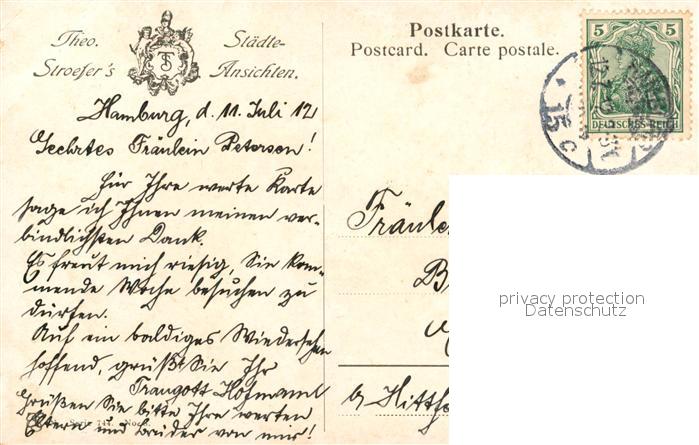 Theo. Stroefer's
Städte-Ansichten.
TS
Postkarte.
Postcard. Carte postale.
5 5
DEUTSCHES REICH
15 c
Hamburg, d. 11. Juli 12
Geehrtes Fräulein Petersen!
Für Ihre werte Karte
sage ich Ihnen meinen ver-
bindlichsten Dank.
Es freut mich riesig, Sie kom-
mende Woche besuchen zu
dürfen.
Auf ein baldiges Wiedersehen
hoffend, grüßt Sie Ihr
Traugott Hofmann
Grüßen Sie bitte Ihre werten
Eltern und Brüder von mir!
Serie 744. No
Fräulein
B
privacy protection
Datenschutz